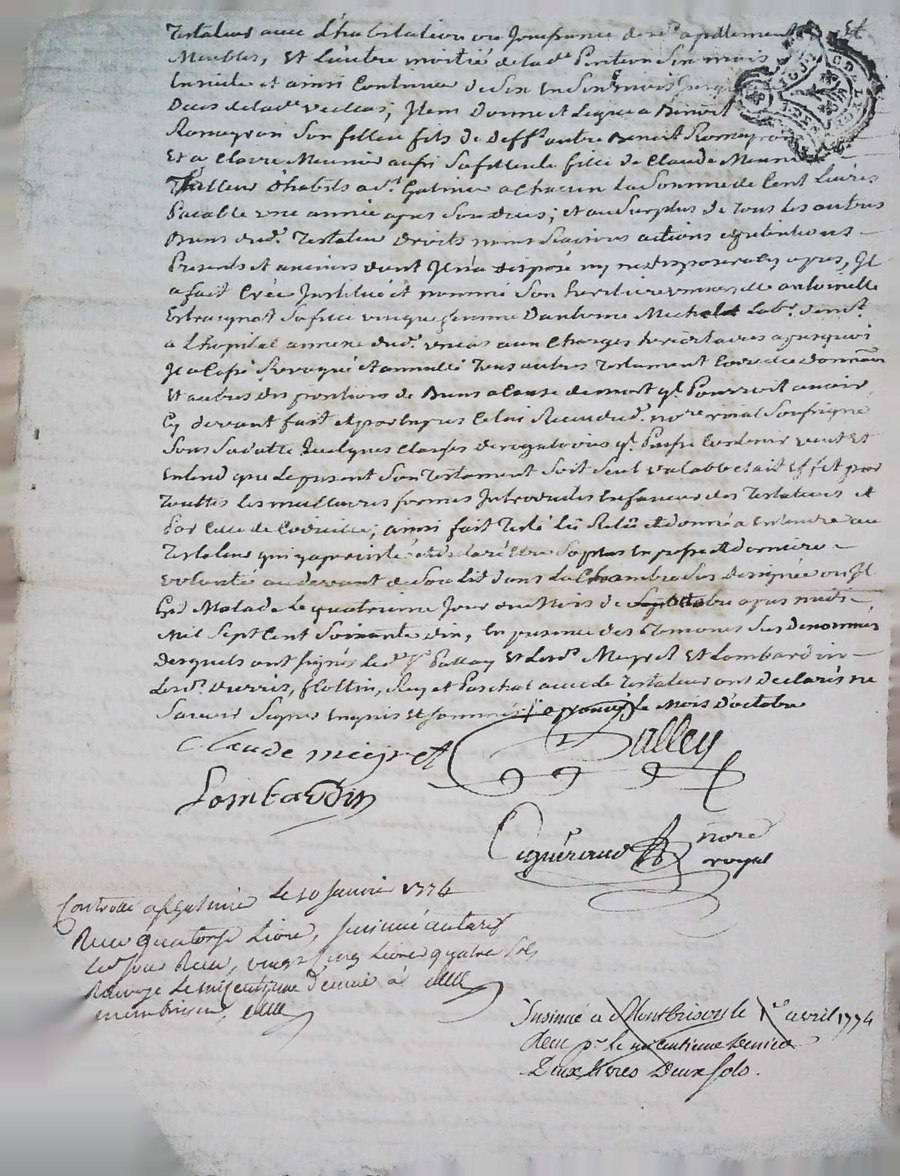 Testateur avec L'habitation ou Jouissance desd. apartements Et
Meubles, Et L'autre moitié de lad. Pention Six mois
Ensuite et ainsi Continuer de Six En Six mois jusqu'
Deces de lad. veuve; Item Donne et Legue a Benoit
Romeyron Son filleu fils de deff. autre Benoit Romeyron
Et a Claire Meunier aussi Sa filleule fille de Claude Meunier
Tailleur d'habits a St. Galmier a chacun La Somme de Cent Livres
Paiable une année apres Son deces; et au Surplus de tous les autres
Biens dud. Testateur Droits noms Raisons actions et pretentions
Presents et avenirs dont Il n'a disposé ny ne disposera Cy apres, Il
a fait Créé Institué et nommé Son heritiere universelle antoinette
Sa fille femme D'antoine Michel Lab. demt.
a L'hopital annexe dud. aux Charges hereditaires apresquoi
Il a Cassé Revoqué et annullé Tous autres Testament Codicile donnation
Et autres dispositions de Biens a Cause de mort q'il Pourroit avoir
Cy devant fait et par Expres Celui Recu dud. nore royal Soussigné
Sous Sa datte quelques Clauses derogatoires q'il Puisse Contenir veut Et
Entend que Le present Son Testament Soit Seul valable et ait Effet par
Touttes les meilleures formes Introduites En faveur des Testateurs et
Par Celle de Codicille; ainsi fait Testé Lû Relû et donné a Entendre au
Testateur qui y a persisté et déclaré Etre Sa plus Expresse et derniere
volonté au devant de Son Lit dans La Chambre Sus designée ou Il
Est Malade Le quatrieme Jour du Mois de Septembre apres midi
Mil Sept Cent Soixante dix, En presence des Temoins Sus denommés
Desquels ont Signés Led. Sr. Palley Et Lesd. Meyret Et Lombardin
Lesd. Flottin, Rey et Paschal avec Le Testateur ont Declarés ne
Savoir Signer Enquis Et Sommés J'approuve le mois d'octobre
Claude meyret Palley
Lombardin
Eyguéraud nore
royal
Controllé a St Galmier Le 10 Janvier 1774
Recu quatorse Livre, Insinué au tarif
Led. Jour Recu, vingt Cinq Livre quatre Sols
Renvoyé Le centieme denier à
montbrison,
Insinué à Montbrison le 1er avril 1774
Recu pr le centieme denier
Deux livres Deux sols.